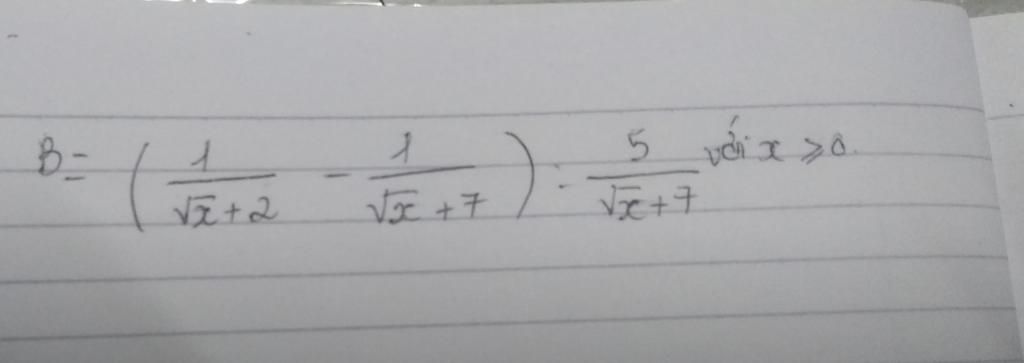 B = ( 1/(√x + 2) - 1/(√x + 7) ) : 5/(√x + 7) với x ⩾ 0.